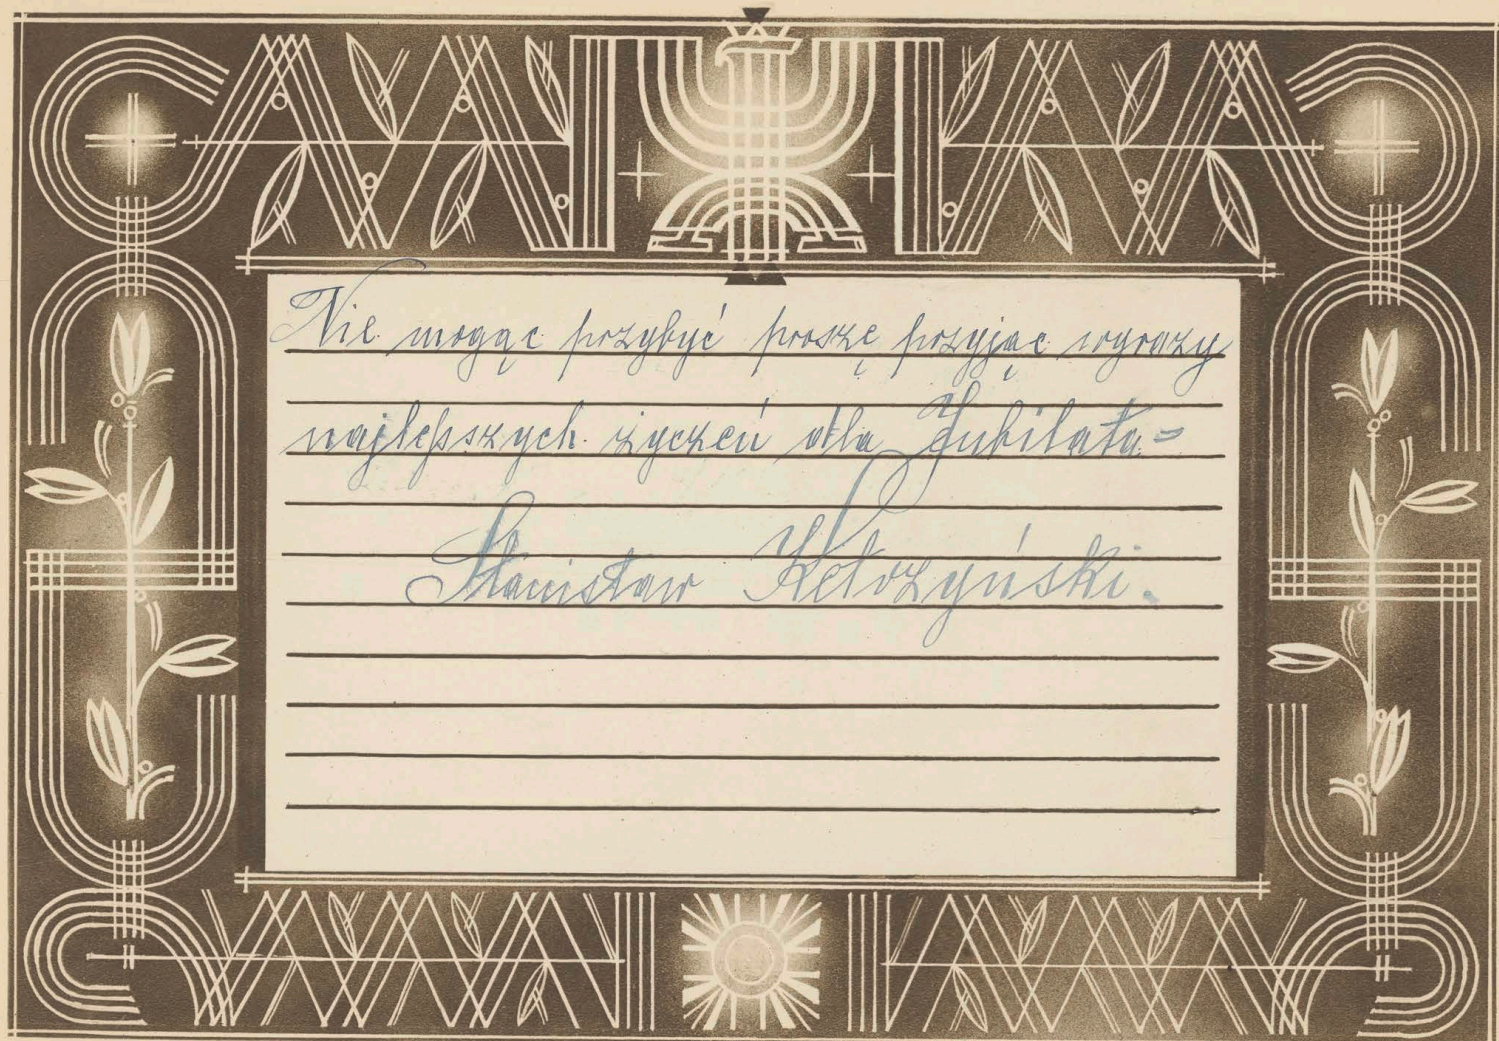 Nie mogąc przybyć proszę przyjąc wyrazy
najlepszych życzeń dla Jubilata =
Stanisław Kętrzyński.